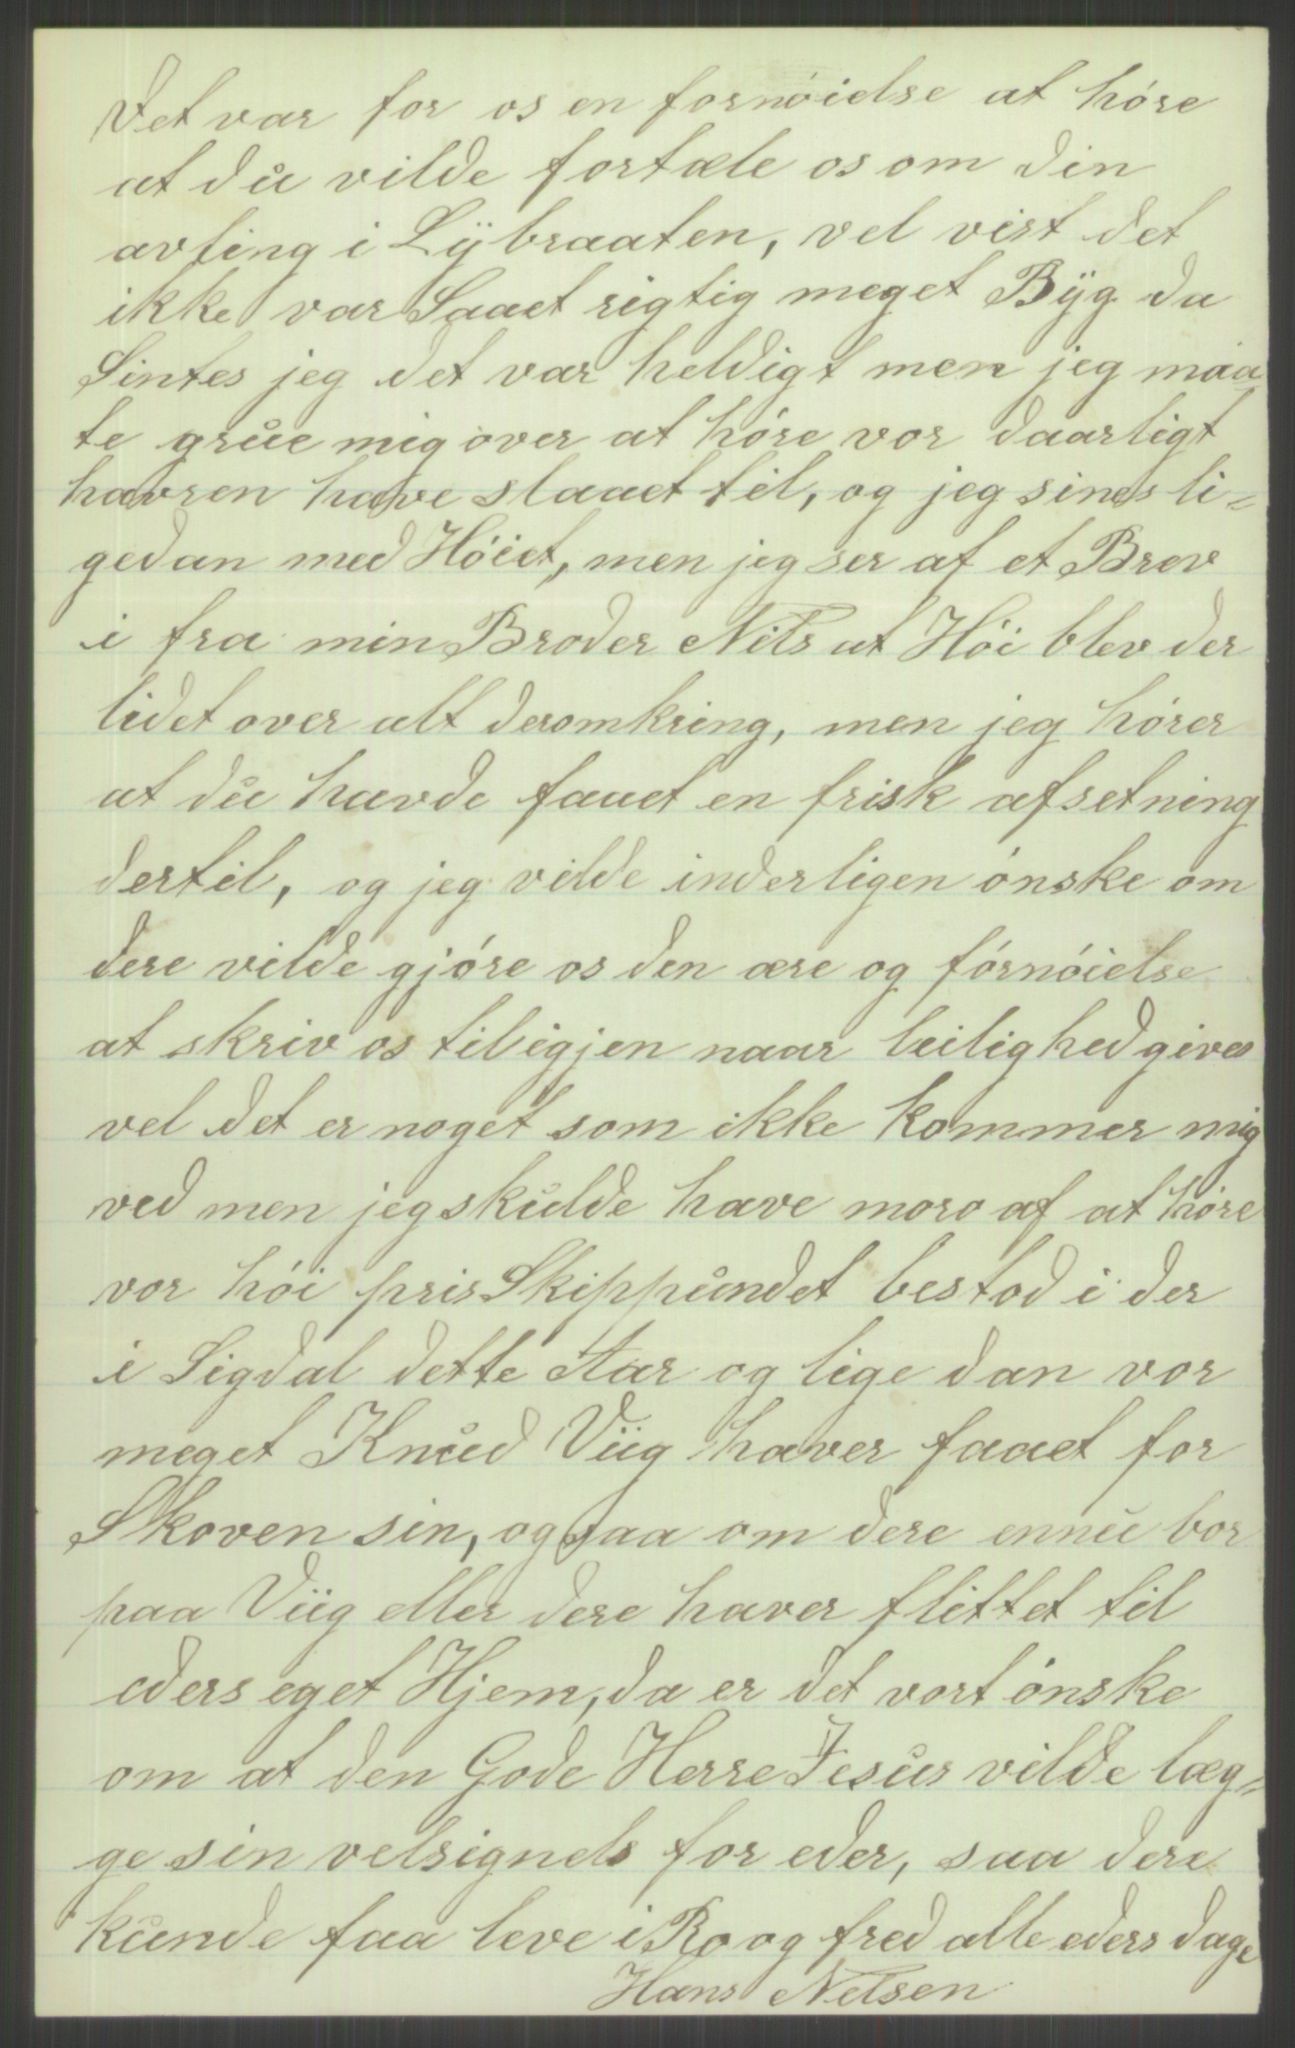 Det var for os en fornöielse at höre
at du vilde fortæle os om din
avling i Lÿbraaten, vel vist det
ikke var Saaet rigtig meget Bÿg da
Sintes jeg det var heldigt men jeg maa-
te grue mig over at höre vor daarligt
havren have slaaet til, og jeg sines li-
gedan med Höiet, men jeg ser af et Brev
i fra min Broder Nils at Höi blev der
lidet over alt deromkring, men jeg hörer
at du havde faaet en frisk afsetning
dertil, og jeg vilde inderligen önske om
dere vilde gjöre os den ære og förnöielse
at skriv os til igjen naar leilighed gives
vel det er noget som ikke kommer mig
ved men jeg skulde have moro af at höre
vor höi pris Skippundet bestod i der
i Sigdal dette Aar og lige dan vor
meget Knud Viig haver faaet for
Skoven sin, og saa om dere ennu bor
paa Viig eller dere haver flittet til
eders eget Hjem, da er det vort önske
om at den Gode Herre Jesus vilde læg-
ge sin velsignels for eder, saa dere
kunde faa leve i Ro og fred alle eders dage
Hans Nelsen